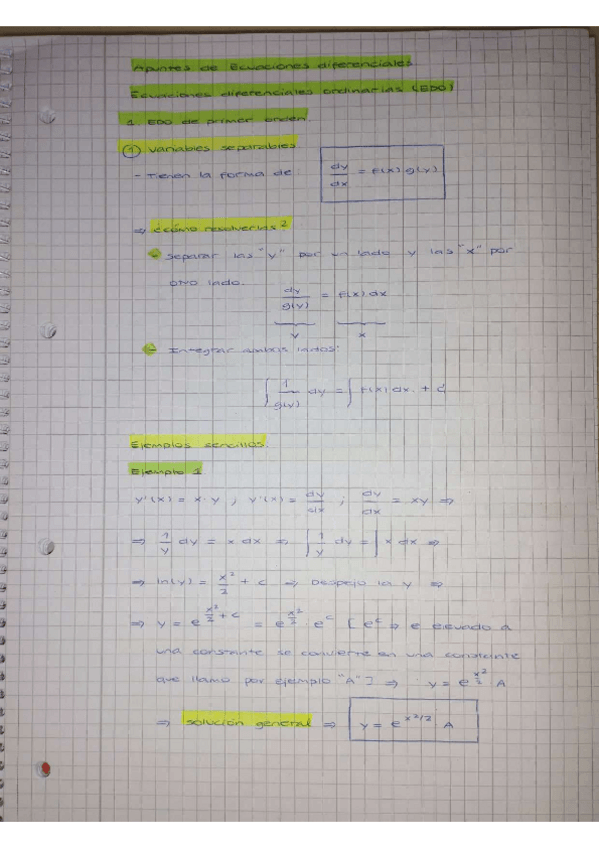 Apuntes de Ecuaciones diferenciales
Ecuaciones diferenciales ordinarias (EDO)
1. EDO de primer orden.
① Variables separables
- Tienen la forma de: dy/dx = f(x) g(y)
⇒ ¿cómo resolverlas?
- Separar las "y" por un lado y las "x" por
otro lado.
dy/g(y) = f(x) dx
y x
- Integrar ambos lados:
∫ 1/g(y) dy = ∫ f(x) dx + C
Ejemplos sencillos.
Ejemplo 1.
y'(x) = x · y ; y'(x) = dy/dx ; dy/dx = xy ⇒
⇒ 1/y dy = x dx ⇒ ∫ 1/y dy = ∫ x dx ⇒
⇒ ln(y) = x²/2 + c ⇒ Despejo la y ⇒
⇒ y = e^(x²/2 + c) = e^(x²/2) · e^c [e^c ⇒ e elevado a
una constante se convierte en una constante
que llamo por ejemplo "A"] ⇒ y = e^(x²/2) A
⇒ solución general ⇒ y = e^(x²/2) A